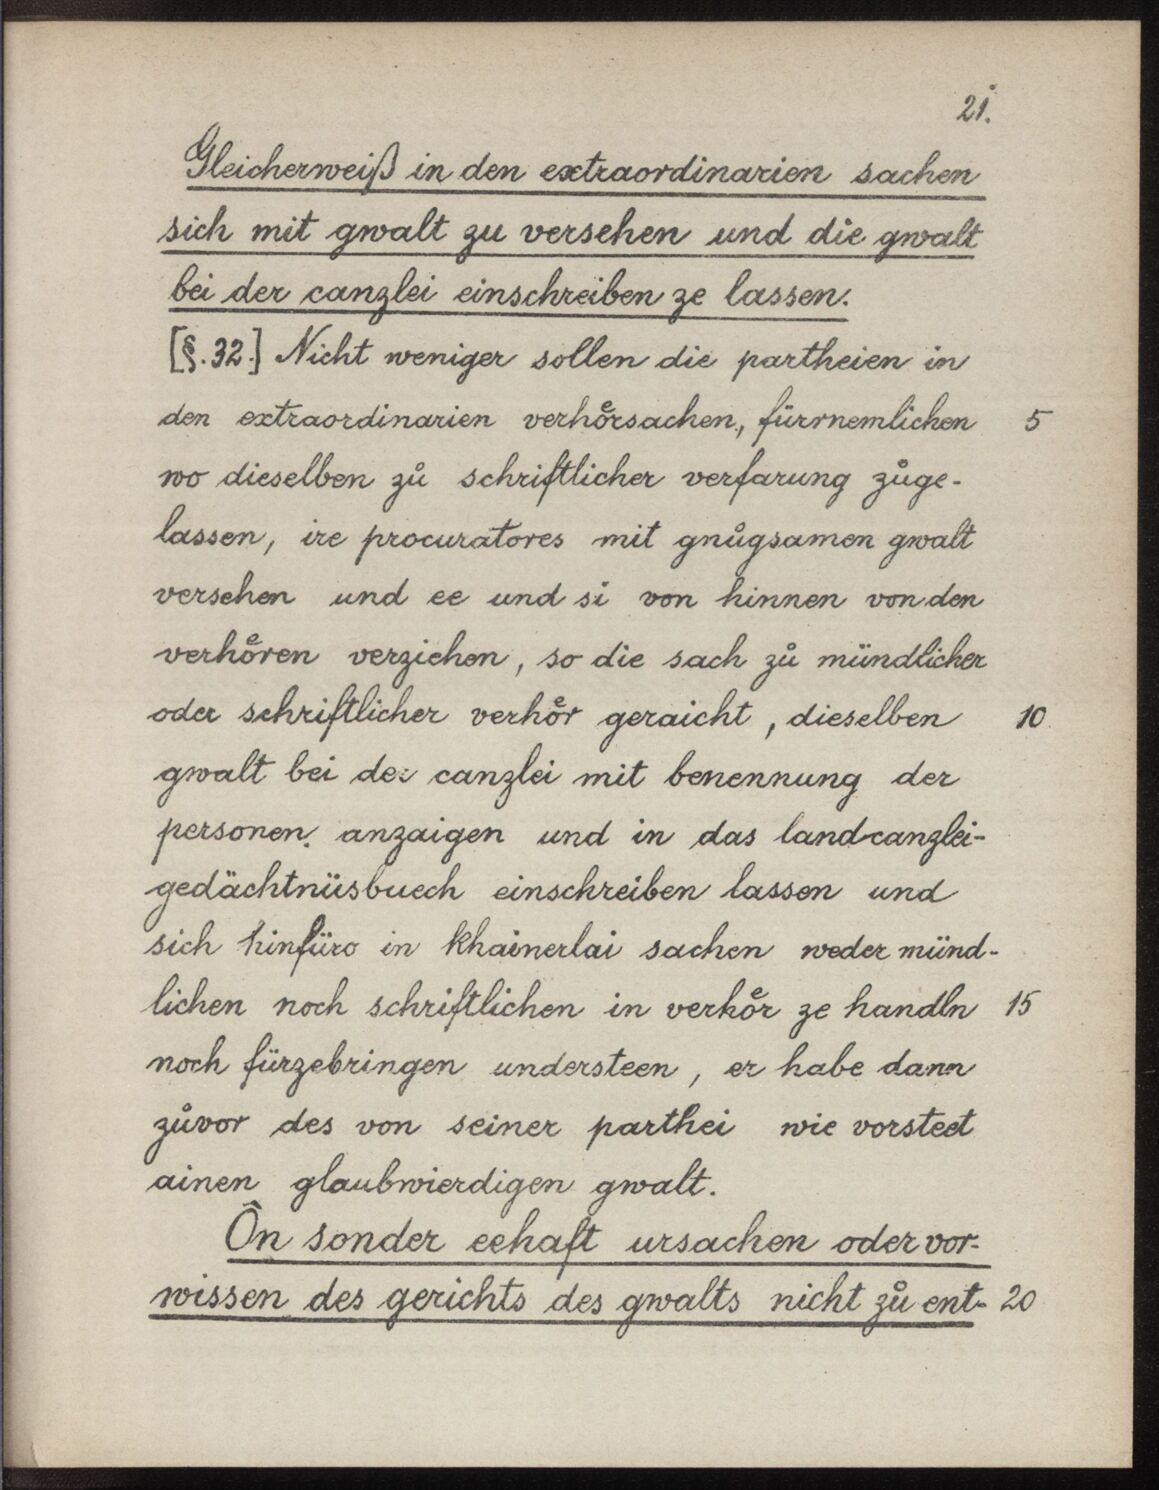 21.
Gleicherweiß in den extraordinarien sachen
sich mit gwalt zu versehen und die gwalt
bei der canzlei einschreiben ze lassen.
[§. 32.] Nicht weniger sollen die partheien in
den extraordinarien verhoͤrsachen, fürrnemlichen 5
wo dieselben zů schriftlicher verfarung zůge-
lassen, ire procuratores mit gnůgsamen gwalt
versehen und ee und si von hinnen von den
verhoͤren verziehen, so die sach zů mündlicher
oder schriftlicher verhoͤr geraicht, dieselben 10
gwalt bei der canzlei mit benennung der
personen. anzaigen und in das landcanzlei-
gedächtnüsbuech einschreiben lassen und
sich hinfüro in khainerlai sachen weder münd-
lichen noch schriftlichen in verhoͤr ze handln 15
noch fürzebringen understeen, er habe dann
zůvor des von seiner parthei wie vorsteet
ainen glaubwierdigen gwalt.
Ôn sonder eehaft ursachen oder vor-
wissen des gerichts des gwalts nicht zů ent- 20